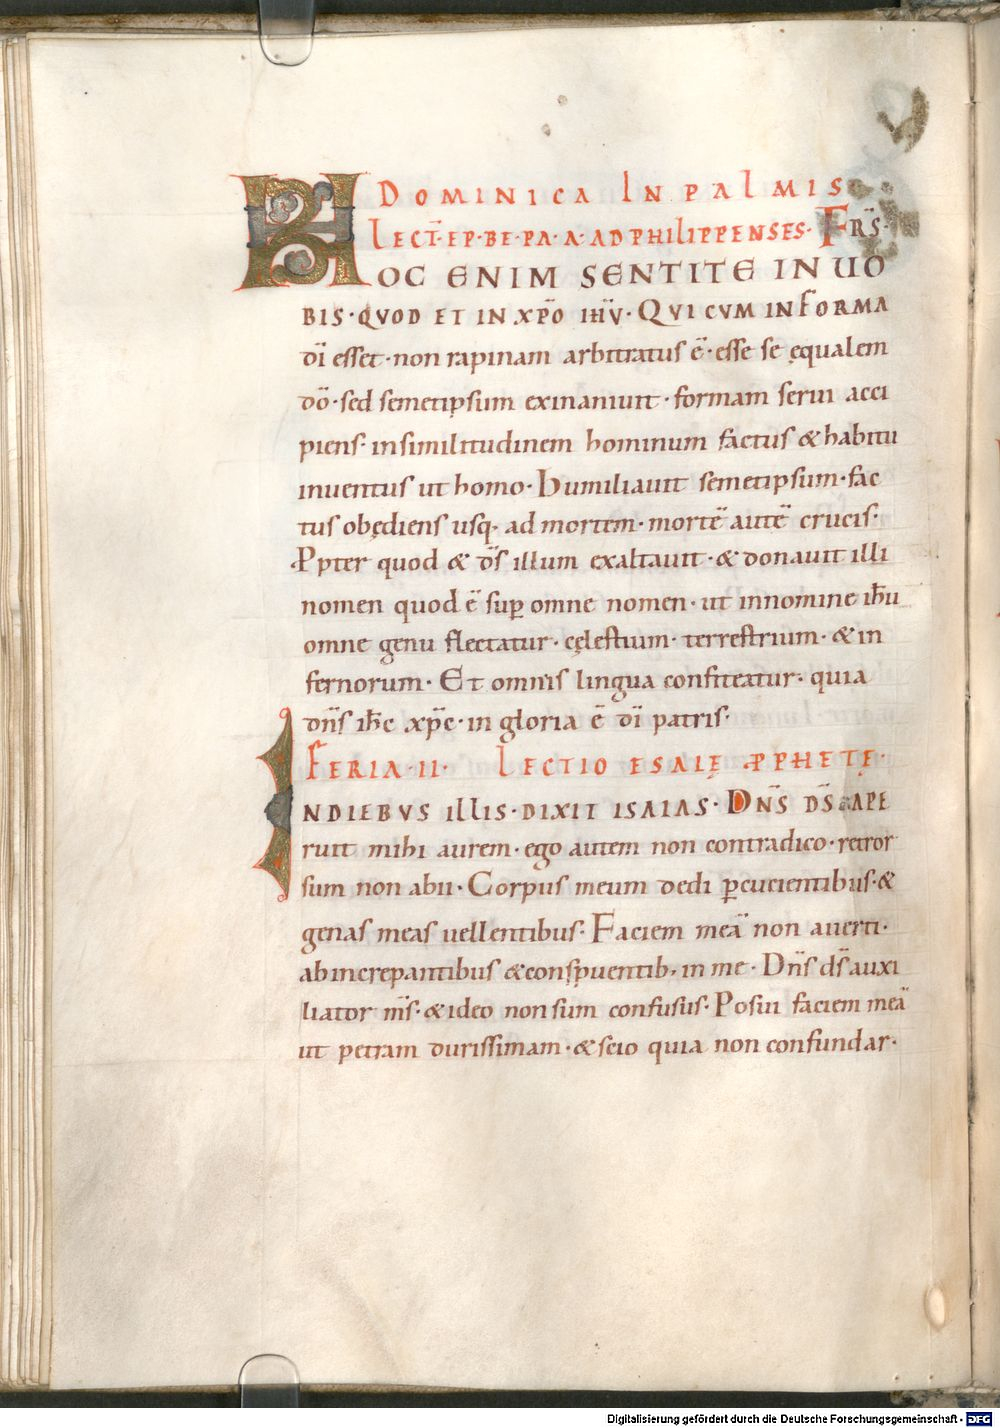 DOMINICA IN PALMIS
LECT̄·EP·BE·PA·A·AD PHILIPPENSES· FR̄S·
HOC ENIM SENTITE IN UO
BIS·QVOD ET IN XP̄O IHV̄· QVI CVM IN FORMA
dī esset·non rapinam arbitratus ē·esse se ęqualem
dō·sed semetipsum exinaniuit·formam serui acci
piens·in similitudinem hominum factus & habitu
inuentus ut homo· Humiliauit semetipsum·fac
tus obędiens usq· ad mortem·mortē autē crucis·
Ꝓpter quod & ds̄ illum exaltauit·& donauit illi
nomen quod ē sup̄ omne nomen·ut in nomine ih̄u
omne genu flectatur·cęlestium·terrestrium·& in
fernorum· Et omnis lingua confiteatur·quia
dn̄s ih̄c xp̄c·in gloria ē dī patris·
FERIA·II· LECTIO ESAIĘ ꝒPHETĘ·
INDIEBVS ILLIS·DIXIT ISAIAS· DN̄S DS̄ APE
ruit mihi aurem·ego autem non contradico·retror
sum non abii· Corpus meum dedi ꝑcucientibus·&
genas meas uellentibus· Faciem meā non auerti·
ab increpantibus & conspuentib; in me· Dn̄s ds̄ auxi
liator ms̄·& ideo non sum confusus· Posui faciem meā
ut petram durissimam·& scio quia non confundar·
Digitalisierung gefördert durch die Deutsche Forschungsgemeinschaft - DFG